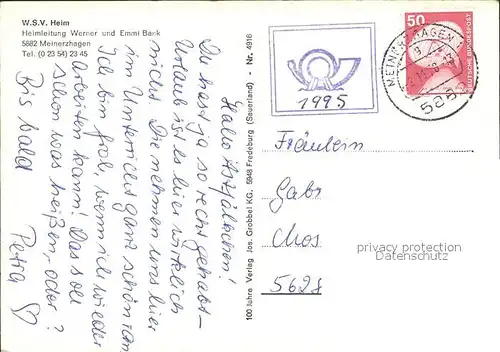 W.S.V. Heim
Heimleitung Werner und Emmi Bank
5882 Meinerzhagen
Tel. (0 23 54) 23 45
Hallo
Du hast ja so recht gehabt –
Urlaub ist es hier wirklich
nicht. Die nehmen uns hier
im Unterricht ganz schön ran.
Ich bin froh, wenn ich wieder
arbeiten kann! Das soll
schon was heißen, oder?
Bis bald
Petra
100 Jahre Verlag Jos. Grobbel KG, 5948 Fredeburg (Sauerland) - Nr. 4916
1995
50
DEUTSCHE BUNDESPOST
MEINERZHAGEN 1
Fräulein
Gabr
Mos
5628
privacy protection
watermark